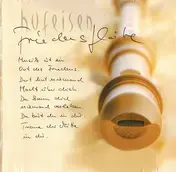 hufeisen
Friedensflöte
Musik ist ein
Ort des Friedens
Dort hat niemand
Macht über dich
Da kann dich
niemand verletzen
Da bist du in dir
Traum der Stille
in dir.